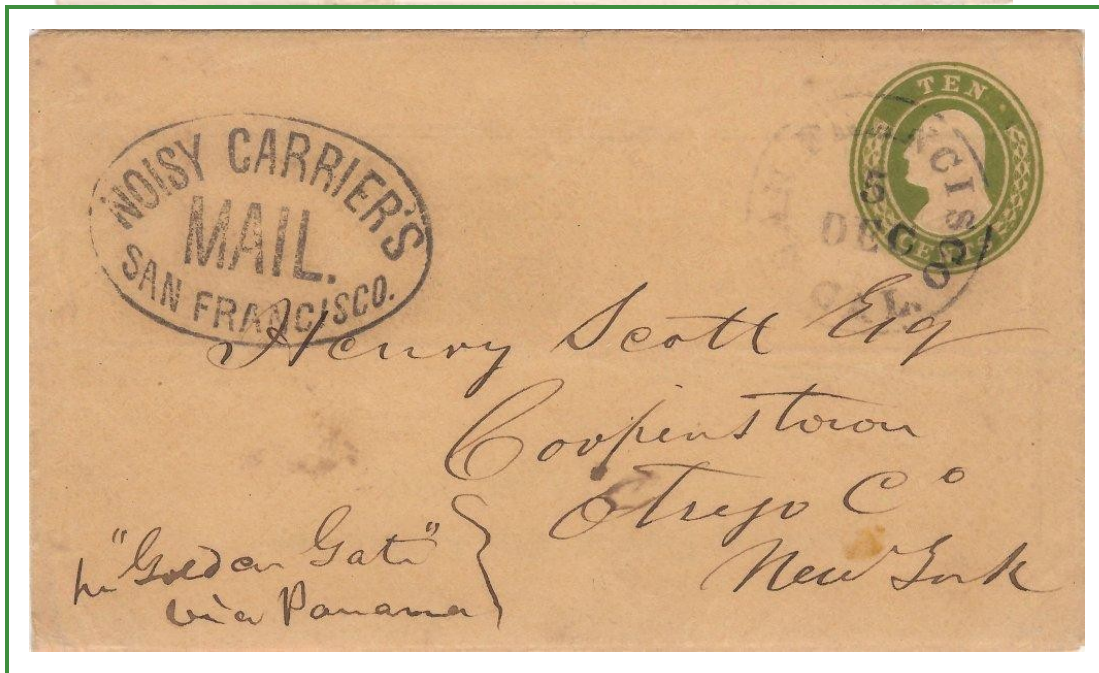 NOISY CARRIER'S
MAIL.
SAN FRANCISCO.
TEN
CENTS
5
DEC
CAL.
Henry Scott Esq
Cooperstown
Otsego Co
New York
pr "Golden Gate"
via Panama